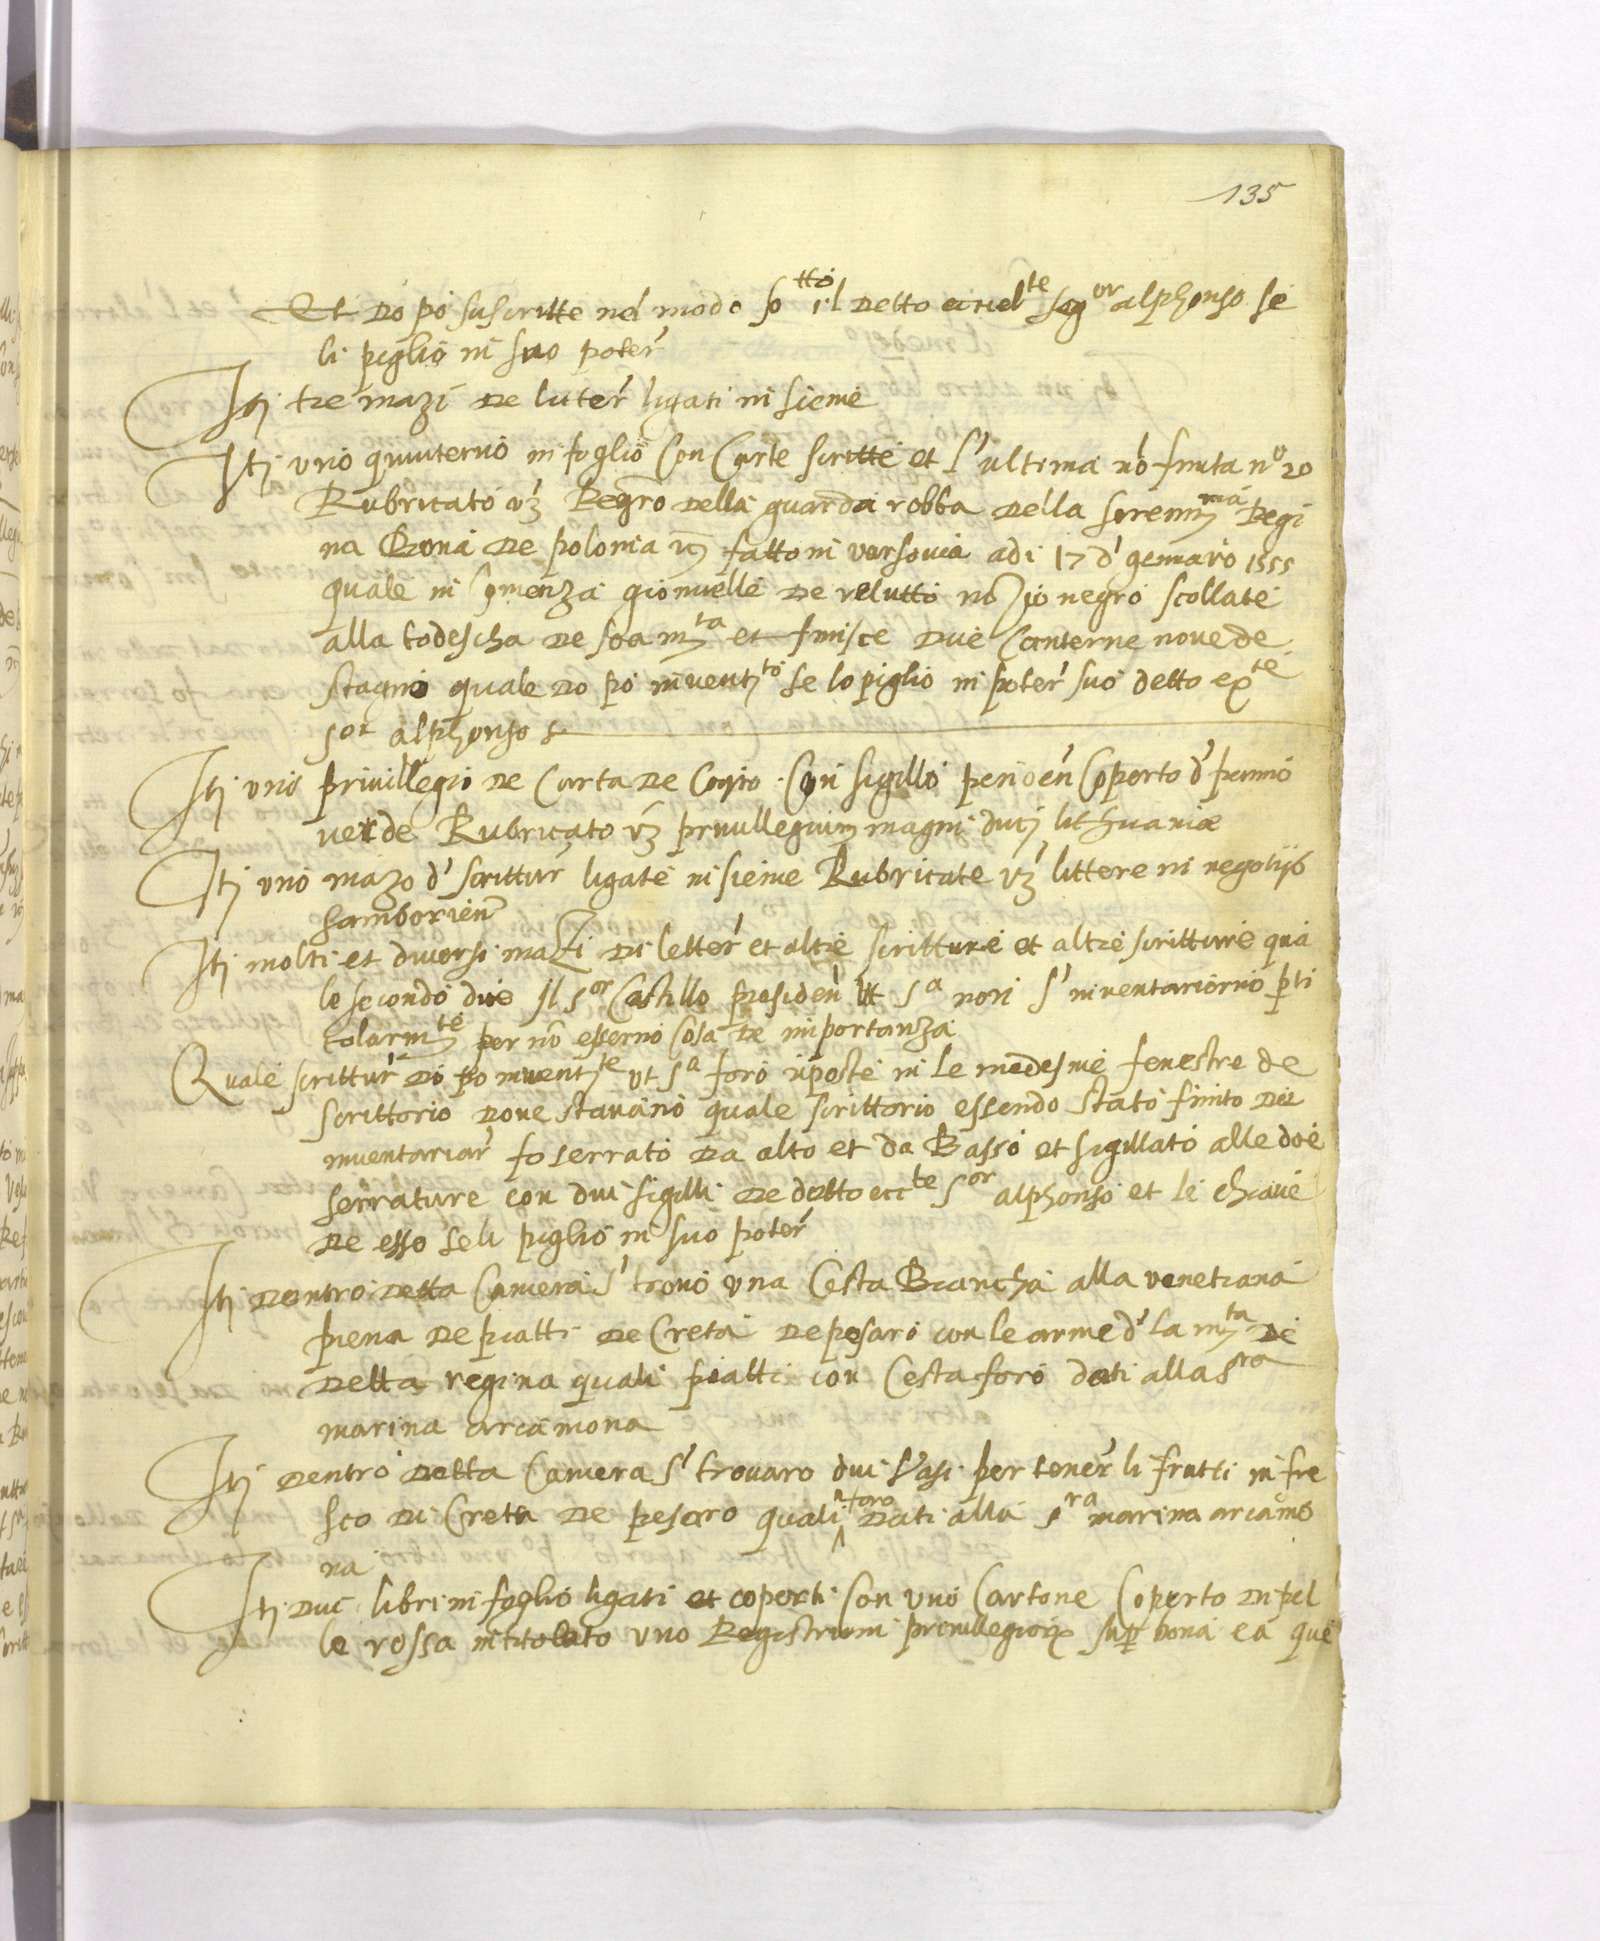 135
Et do po suscritte nel modo so tto il detto eccel te sig or alphonso se
li piglio in suo poter
Itj tre mazi de luter ligati insieme
Itj uno quinterno in foglio con carte scritte et l'ultima no finita n° 20
Rubricato vz Regro della guarda robba della serenm ma Regi
na Bona de polonia fatto in varsovia adi 17 d' gennaro 1555
quale in comenza gionnelle de velutto negro scollate
alla todescha de soa m ta et finisce due canterne nove de
stagno quale do po inventj to se lo piglio in poter suo detto ex te
s or alphonso
Itj uno privillegio de carta de coyro con sigillo penden coperto d' panno
verde Rubricato vz privullegium magni ducj lithuaniæ
Itj uno mazo d' scrittur ligate insieme Rubricate vz littere in negotijs
samborien
Itj molti et diversi mazi di letter et altre scritture et altre scritture qua
le secondo dice il s or Castillo presiden ut s a non s' inventariorno pti
colarm te per no esserno cosa de importanza
Quale scrittur do po inventj te ut s a foro riposte in le medesme fenestre de
scrittorio dove stavano quale scrittorio essendo stato finito de
inventariar fo serrato da alto et da Basso et sigillato alle doe
serrature con dui sigilli de detto ecc te s or alphonso et le chiave
de esso se li piglio in suo poter
Itj dentro detta camera s' trovò una Cesta Biancha alla venetiana
piena de piatti de Creta de pesaro con le arme d' la m ta de
detta regina quali piatti con Cesta foro dati alla s ra
marina arcamona
Itj dentro detta camera s' trovaro dui Vasi per tener li frutti in fre
sco di Creta de pesaro quali foro dati alla s ra marina arcamo
na
Itj dui libri in foglio ligati et coperti con uno Cartone coperto di pel
le rossa intitolato uno Registrum privullegiorum super bona ea que